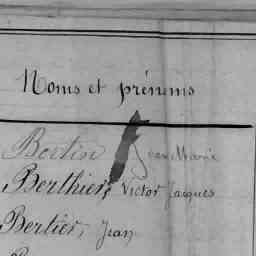 Noms et prénoms
Bertin Jean Marie
Berthier, Victor Jacques
Bertier, Jean